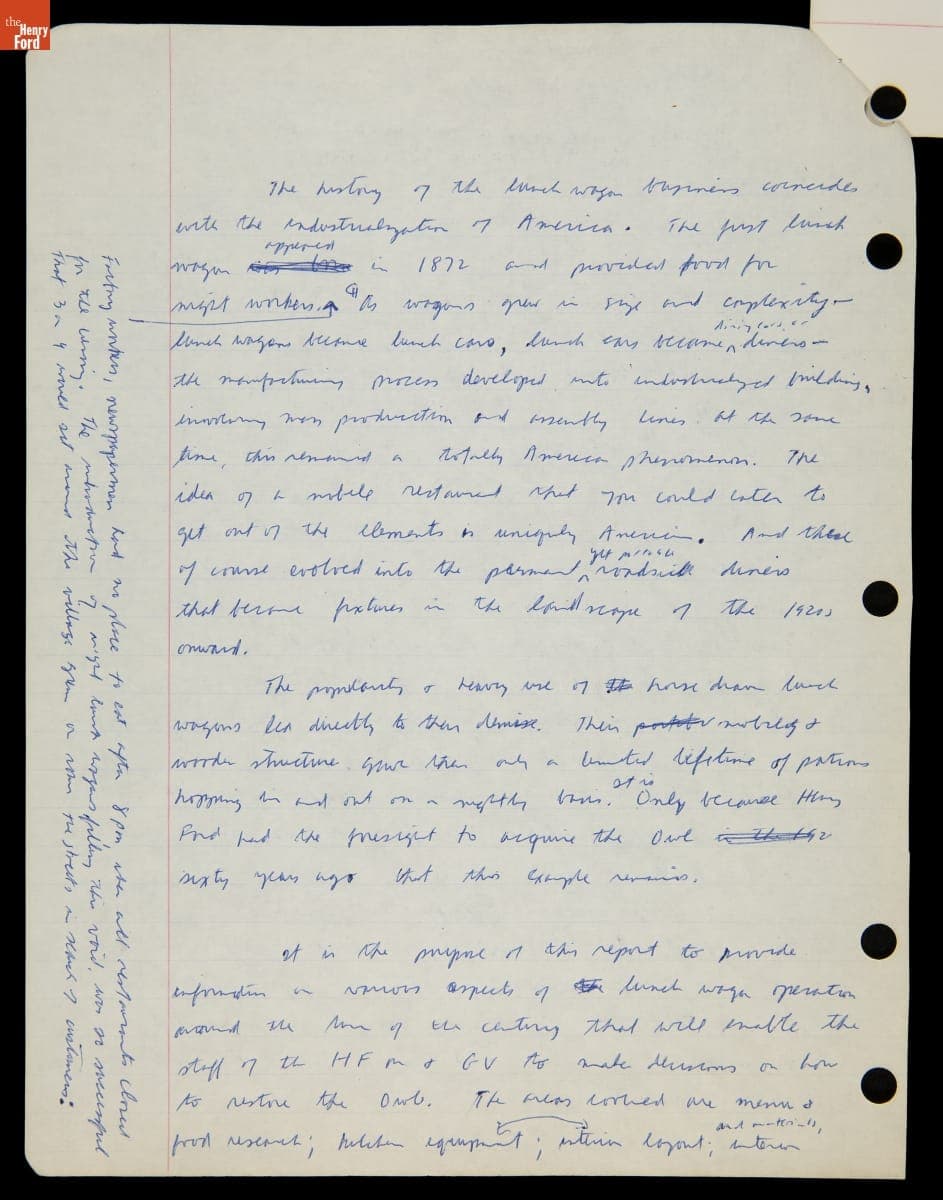 the Henry Ford
The history of the lunch wagon business coincides
with the industrialization of America. The first lunch
appeared
wagon in 1872 and provided food for
night workers. ¶ As wagons grew in size and complexity –
dining cars, or
lunch wagons became lunch cars, lunch cars became diners –
the manufacturing process developed into industrialized building,
involving mass production and assembly lines. At the same
time, this remained a totally American phenomenon. The
idea of a mobile restaurant that you could enter to
get out of the elements is uniquely American. And these
yet
of course evolved into the permanent roadside diners
that became fixtures in the landscape of the 1920s
onward.
The popularity & heavy use of horse drawn lunch
wagons led directly to their demise. Their mobility &
wooden structure gave them only a limited lifetime of patrons
It is
hopping in and out on a nightly basis. Only because Henry
Ford had the foresight to acquire the Owl in the 192
sixty years ago that this example remains.
It is the purpose of this report to provide
information on various aspects of the lunch wagon operation
around the turn of the century that will enable the
staff of the HFM & GV to make decisions on how
to restore the Owl. The areas covered are menu &
and materials,
food research; kitchen equipment; interior layout; interior
Factory workers, newspapermen had no place to eat after 8 pm when all restaurants closed
for the evening. The introduction of night lunch wagons filling this void was so successful
that 3 or 4 would set around the village green or roam the streets in search of customers.